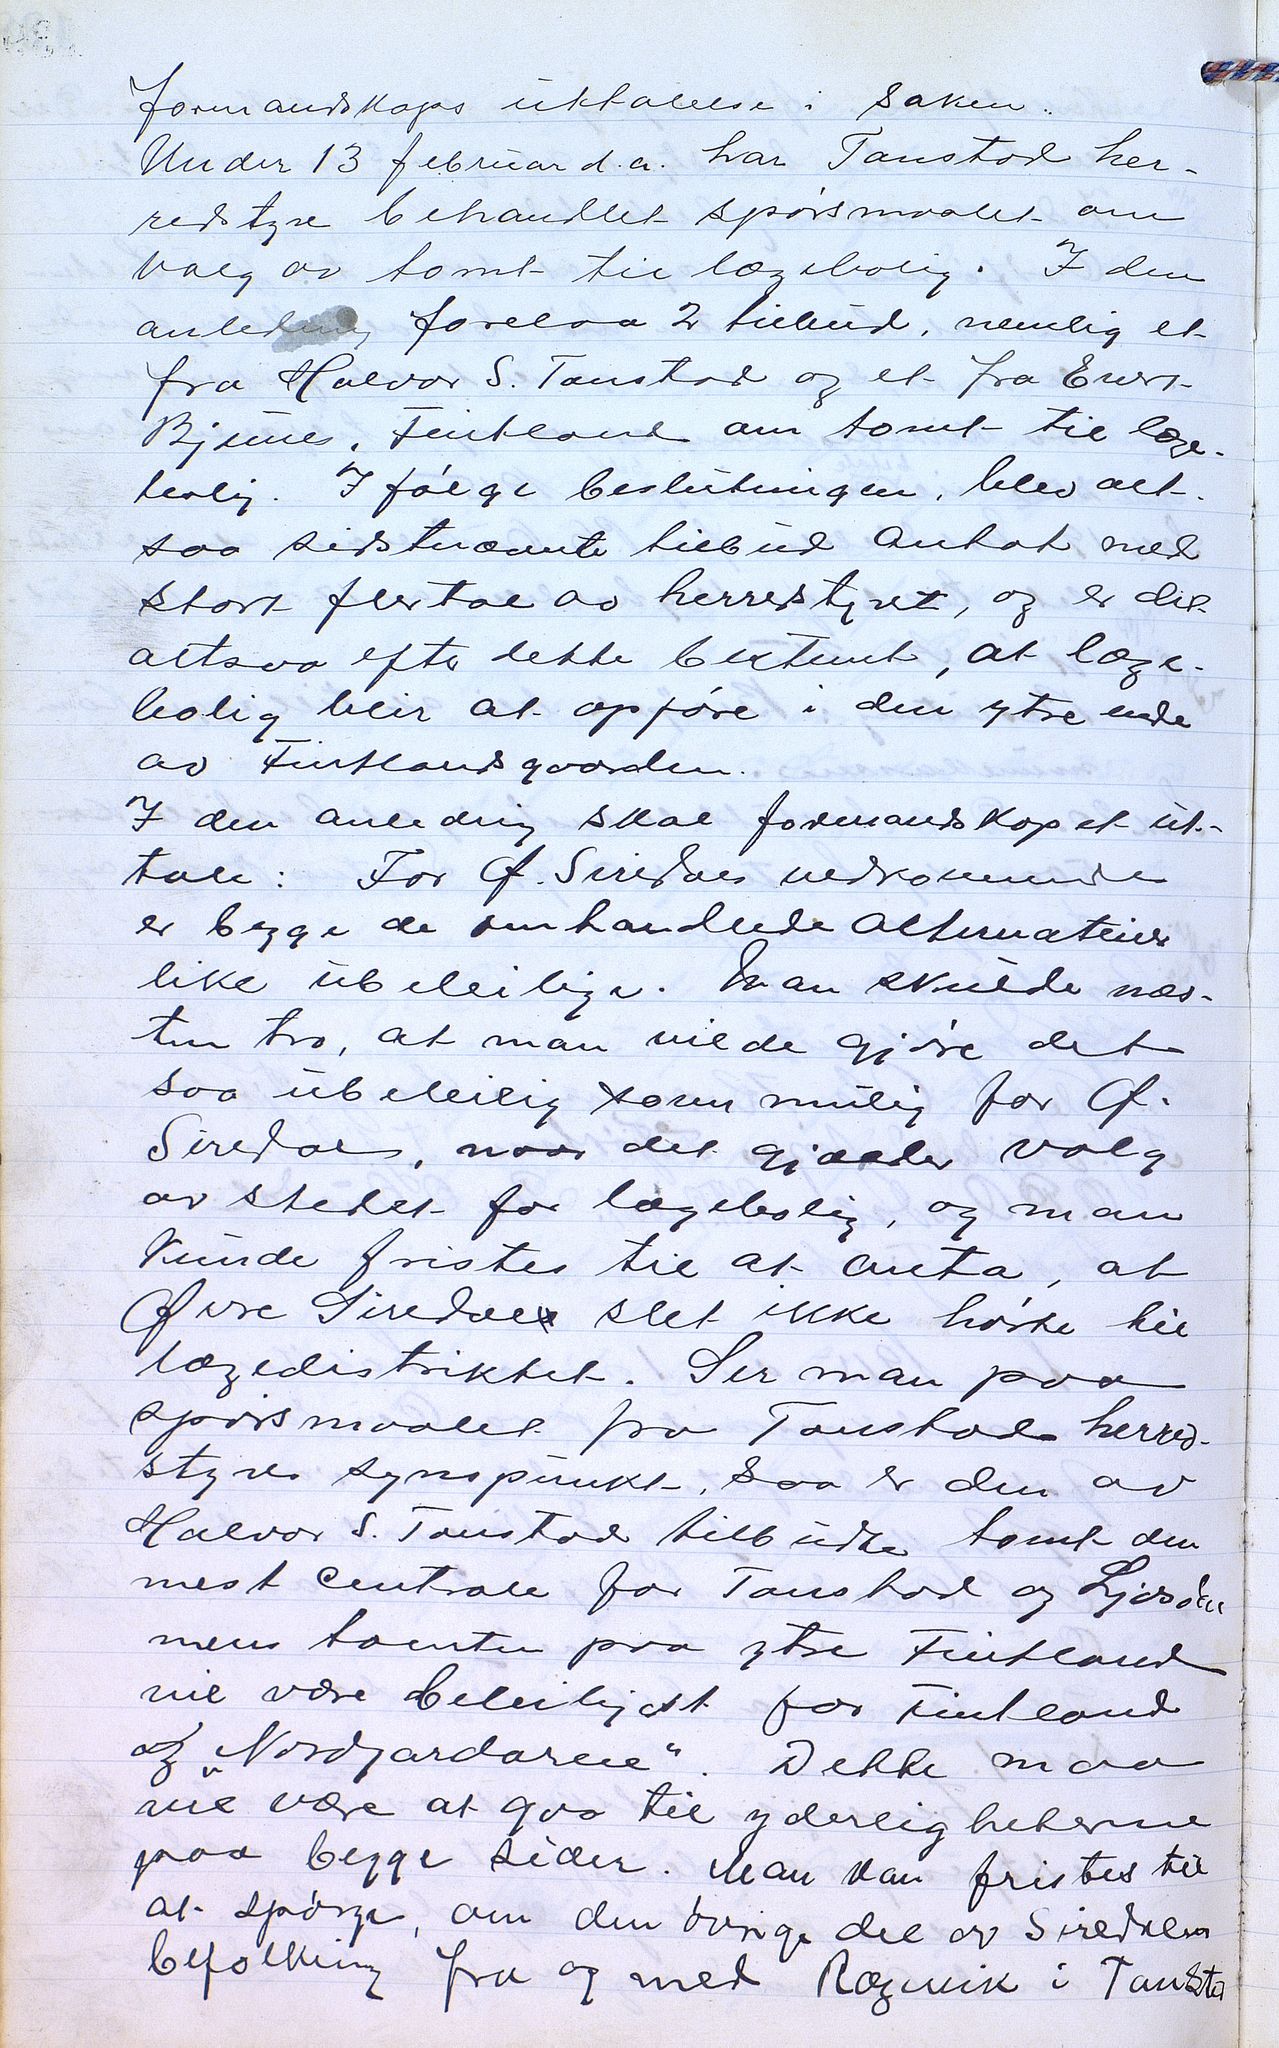 formandskaps uttalelse i saken.
Under 13 februar d.a. har Tonstad her-
redstyre behandlet spørsmaalet om
valg av tomt til lægebolig. I den
anledning forelaa 2 tilbud, nemlig et
fra Halvor S. Tonstad og et fra Enert
Bjunes, Fintland om tomt til læge-
bolig. Ifølge beslutningen, blev alt-
saa sidstnævnte tilbud antat med
stort flertal av herredstyret, og er det
altsaa efter dette bestemt, at læge-
bolig blir at opføre i den ytre ende
av Fintlandsgaarden.
I den anledning skal formandskapet ut-
tale: For Ø. Siredals vedkommende
er begge de omhandlede alternativer
like ubeleilige. Man skulde næs-
ten tro, at man vilde gjøre det
saa ubeleilig som mulig for Ø.
Siredal, naar det gjælder valg
av stedet for lægebolig, og man
kunde fristes til at anta, at
Øvre Siredal slet ikke hørte til
lægedistriktet. Ser man paa
spørsmaalet fra Tonstad herred-
styres synspunkt, saa er den av
Halvor S. Tonstad tilbudte tomt den
mest centrale for Tonstad og Ljosdal
mens tomten paa ytre Fintland
vil være beleiligst for Fintland
og „Nordgardarne“. Dette maa
vel være at gaa til yderligheterne
paa begge sider. Man kan fristes til
at spørge, om den øvrige del av Siredalens
befolkning fra og med Rægevik i Tonsta